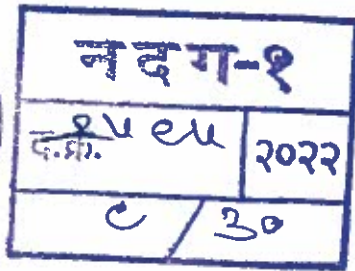 नदग-१
द.क्र. १५९५ २०२२
८ / ३०